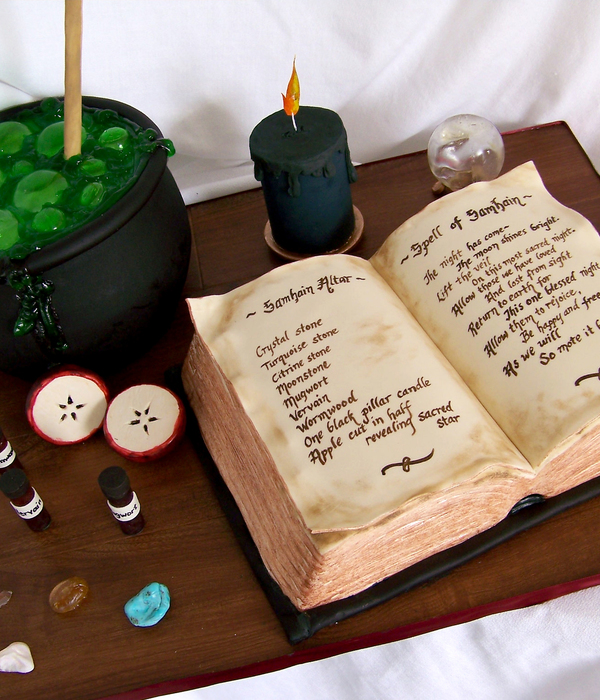 ~ Samhain Altar ~
Crystal stone
Turquoise stone
Citrine stone
Moonstone
Mugwort
Vervain
Wormwood
One black pillar candle
Apple cut in half
revealing sacred
star
~ Spell of Samhain ~
The night has come~
The moon shines bright.
Lift the veil
On this most sacred night.
Allow those we have loved
And lost from sight
Return to earth for
This one blessed night
Allow them to rejoice,
Be happy and free
As we will
So mote it